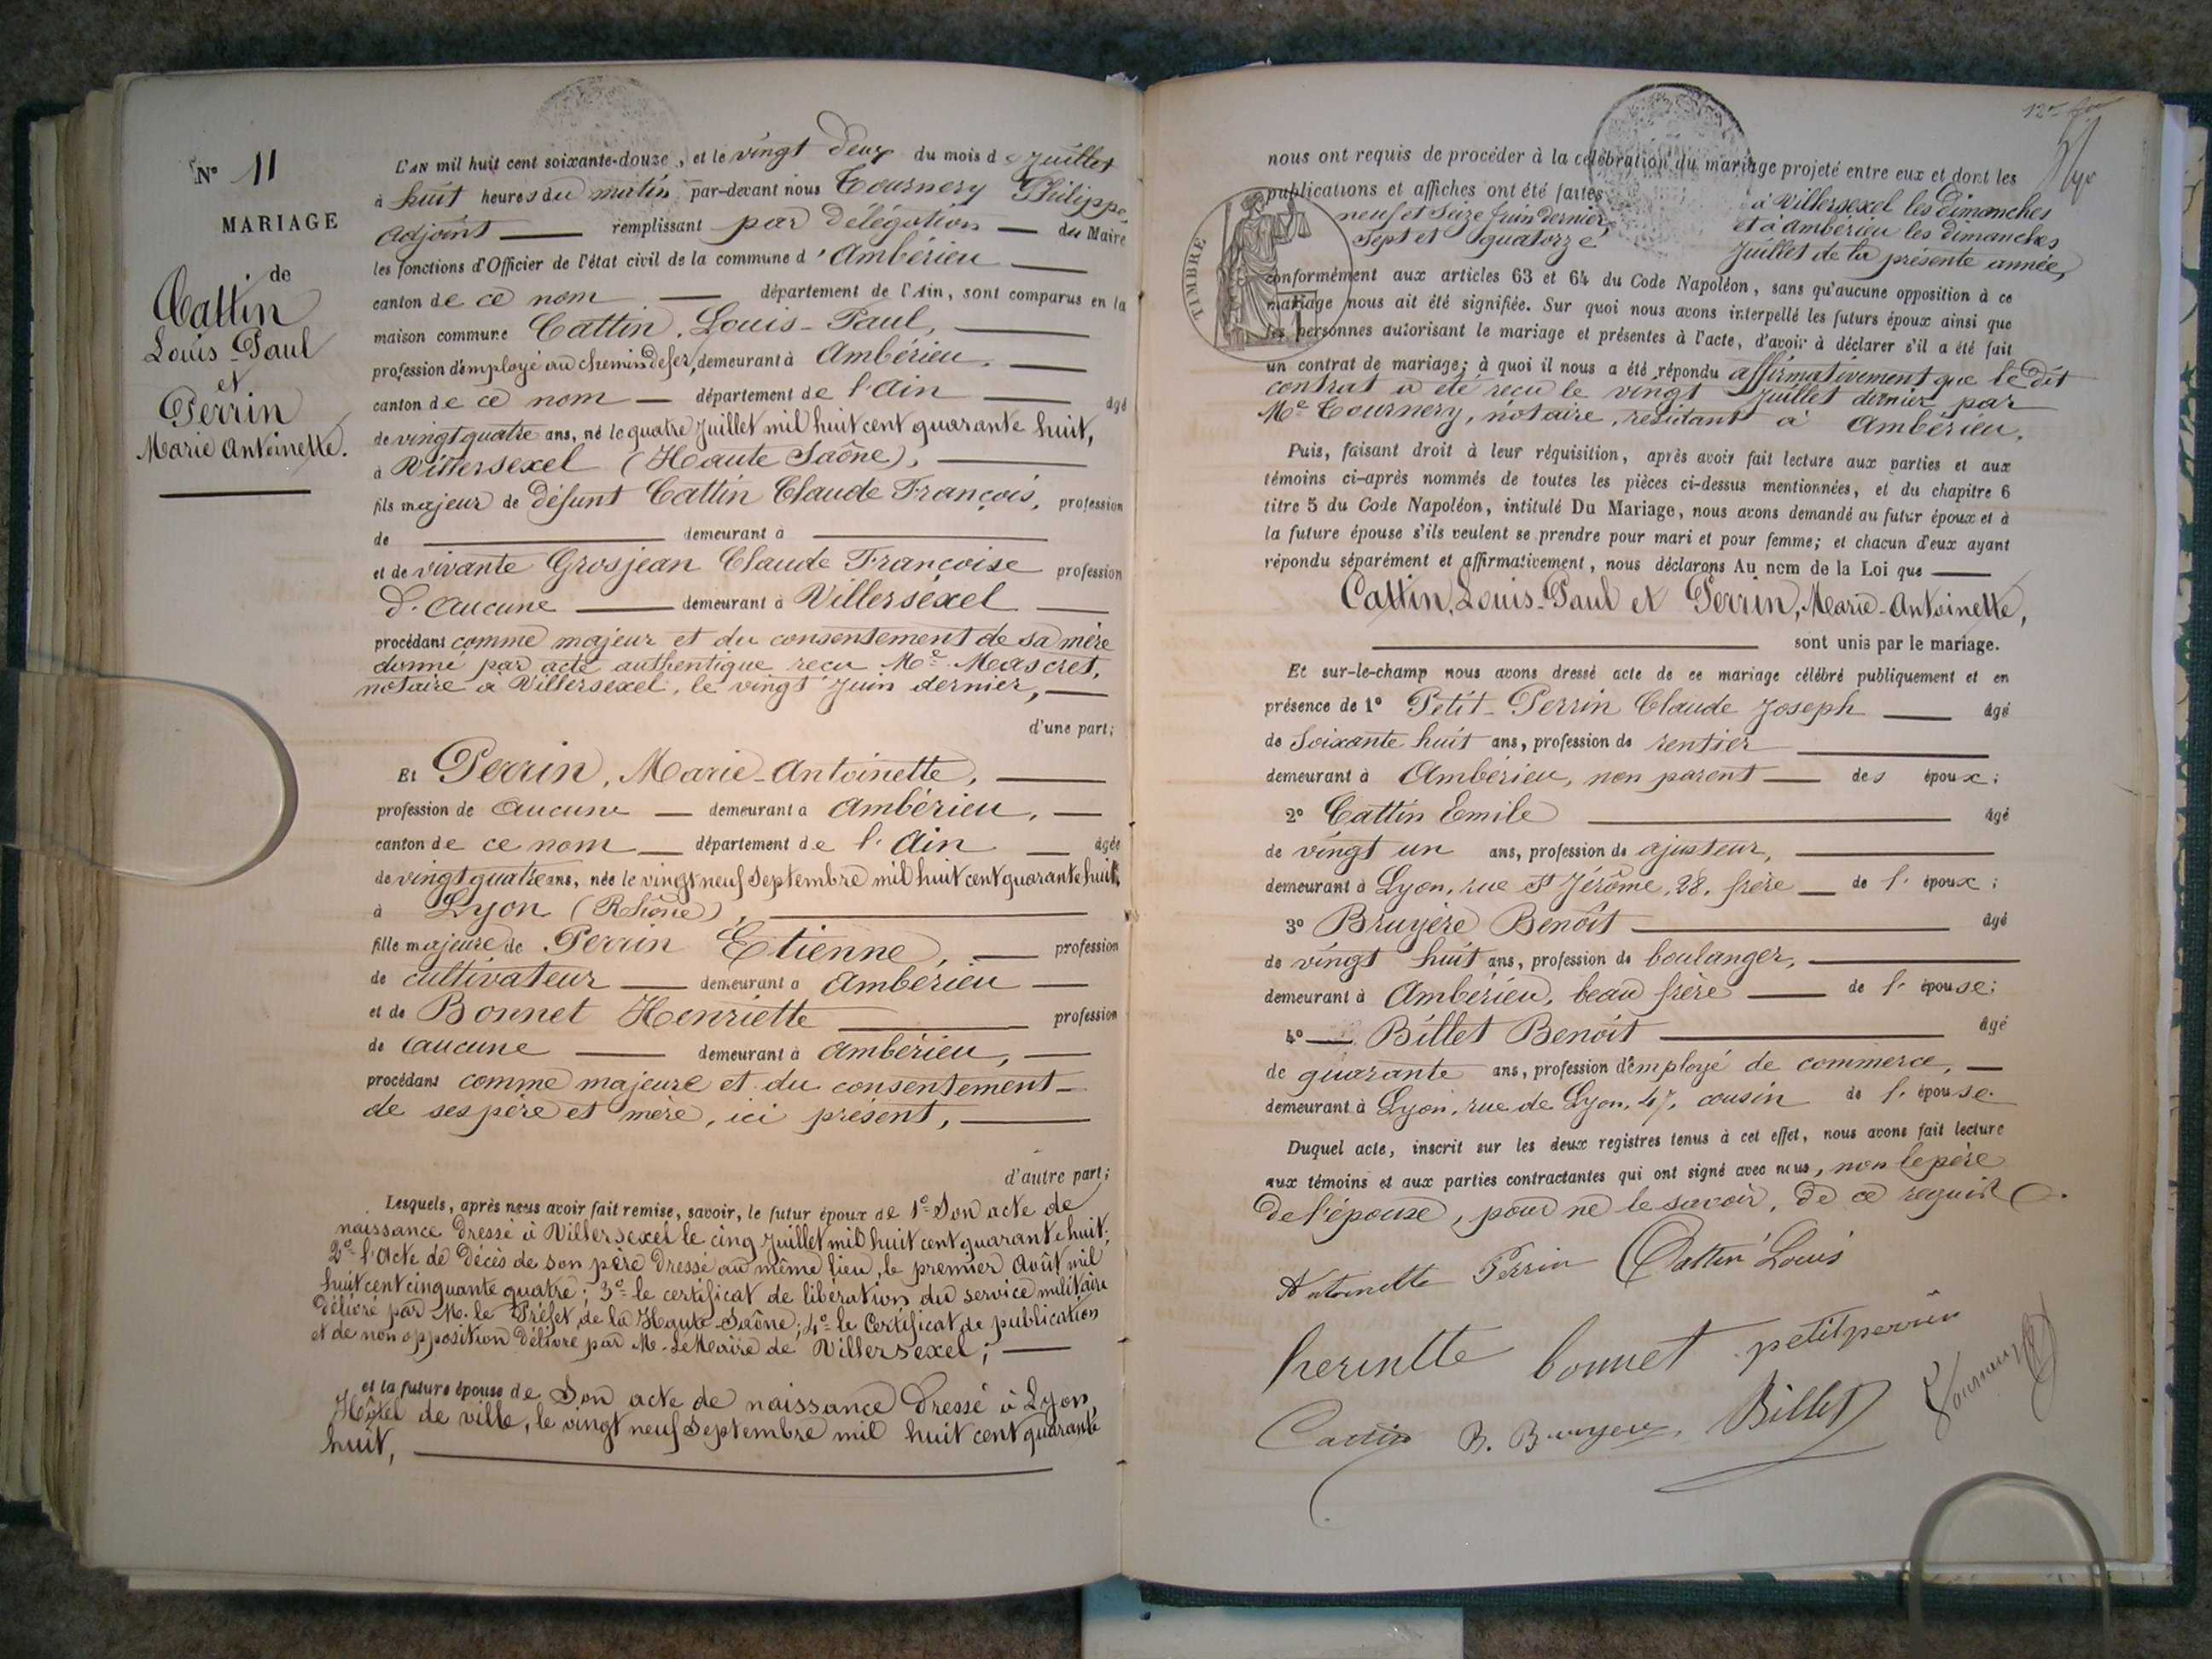 N° 11
MARIAGE
de
Cattin
Louis-Paul
et
Perrin
Marie Antoinette.
L'AN mil huit cent soixante-douze, et le vingt deux du mois de Juillet
à huit heures du matin par-devant nous Tournery Philippe
adjoint remplissant par délégation du Maire
les fonctions d'Officier de l'état civil de la commune d'Ambérieu
canton de ce nom département de l'Ain, sont comparus en la
maison commune Cattin, Louis-Paul,
profession d'employé au chemin de fer, demeurant à Ambérieu,
canton de ce nom département de l'Ain âgé
de vingt quatre ans, né le quatre Juillet mil huit cent quarante huit,
à Villersexel (Haute Saône),
fils majeur de défunt Cattin Claude François, profession
de demeurant à
et de vivante Grosjean Claude Françoise profession
d'aucune demeurant à Villersexel
procédant comme majeur et du consentement de sa mère
donné par acte authentique reçu Me Mascret,
notaire à Villersexel, le vingt Juin dernier,
d'une part;
Et Perrin, Marie-Antoinette,
profession de aucune demeurant à Ambérieu,
canton de ce nom département de l'Ain âgée
de vingt quatre ans, née le vingt neuf Septembre mil huit cent quarante huit,
à Lyon (Rhône),
fille majeure de Perrin Etienne, profession
de cultivateur demeurant à Ambérieu
et de Bonnet Henriette profession
de aucune demeurant à Ambérieu,
procédant comme majeure et du consentement
de ses père et mère, ici présent,
d'autre part;
Lesquels, après nous avoir fait remise, savoir, le futur époux de 1° Son acte de
naissance dressé à Villersexel le cinq Juillet mil huit cent quarante huit;
2° l'acte de décès de son père dressé au même lieu, le premier Août mil
huit cent cinquante quatre; 3° le certificat de libération du service militaire
délivré par M. le Préfet de la Haute-Saône; 4° le Certificat de publication
et de non opposition délivré par M. Le Maire de Villersexel;
et la future épouse de Son acte de naissance dressé à Lyon,
Hôtel de ville, le vingt neuf Septembre mil huit cent quarante
huit,
nous ont requis de procéder à la célébration du mariage projeté entre eux et dont les
publications et affiches ont été faites à Villersexel les dimanches
neuf et Seize Juin dernier, et à Ambérieu les dimanches
Sept et quatorze Juillet de la présente année,
TIMBRE
conformément aux articles 63 et 64 du Code Napoléon, sans qu'aucune opposition à ce
mariage nous ait été signifiée. Sur quoi nous avons interpellé les futurs époux ainsi que
les personnes autorisant le mariage et présentes à l'acte, d'avoir à déclarer s'il a été fait
un contrat de mariage; à quoi il nous a été répondu affirmativement que le dit
contrat a été reçu le vingt Juillet dernier par
Me Tournery, notaire, résidant à Ambérieu.
Puis, faisant droit à leur réquisition, après avoir fait lecture aux parties et aux
témoins ci-après nommés de toutes les pièces ci-dessus mentionnées, et du chapitre 6
titre 5 du Code Napoléon, intitulé Du Mariage, nous avons demandé au futur époux et à
la future épouse s'ils veulent se prendre pour mari et pour femme; et chacun d'eux ayant
répondu séparément et affirmativement, nous déclarons Au nom de la Loi que
Cattin, Louis-Paul et Perrin, Marie-Antoinette,
sont unis par le mariage.
Et sur-le-champ nous avons dressé acte de ce mariage célébré publiquement et en
présence de 1° Petit-Perrin Claude Joseph âgé
de Soixante huit ans, profession de rentier
demeurant à Ambérieu, non parent des époux;
2° Cattin Emile âgé
de vingt un ans, profession de ajusteur,
demeurant à Lyon, rue St Jérôme, 28, frère de l'époux;
3° Bruyère Benoît âgé
de vingt huit ans, profession de boulanger,
demeurant à Ambérieu, beau frère de l'épouse;
4° Billet Benoît âgé
de quarante ans, profession d'employé de commerce,
demeurant à Lyon, rue de Lyon, 47, cousin de l'épouse.
Duquel acte, inscrit sur les deux registres tenus à cet effet, nous avons fait lecture
aux témoins et aux parties contractantes qui ont signé avec nous, non le père
de l'épouse, pour ne le savoir, de ce requis.
Antoinette Perrin Cattin Louis
herintte bonnet petitperrin
Cattin B. Bruyere, Billet Tournery